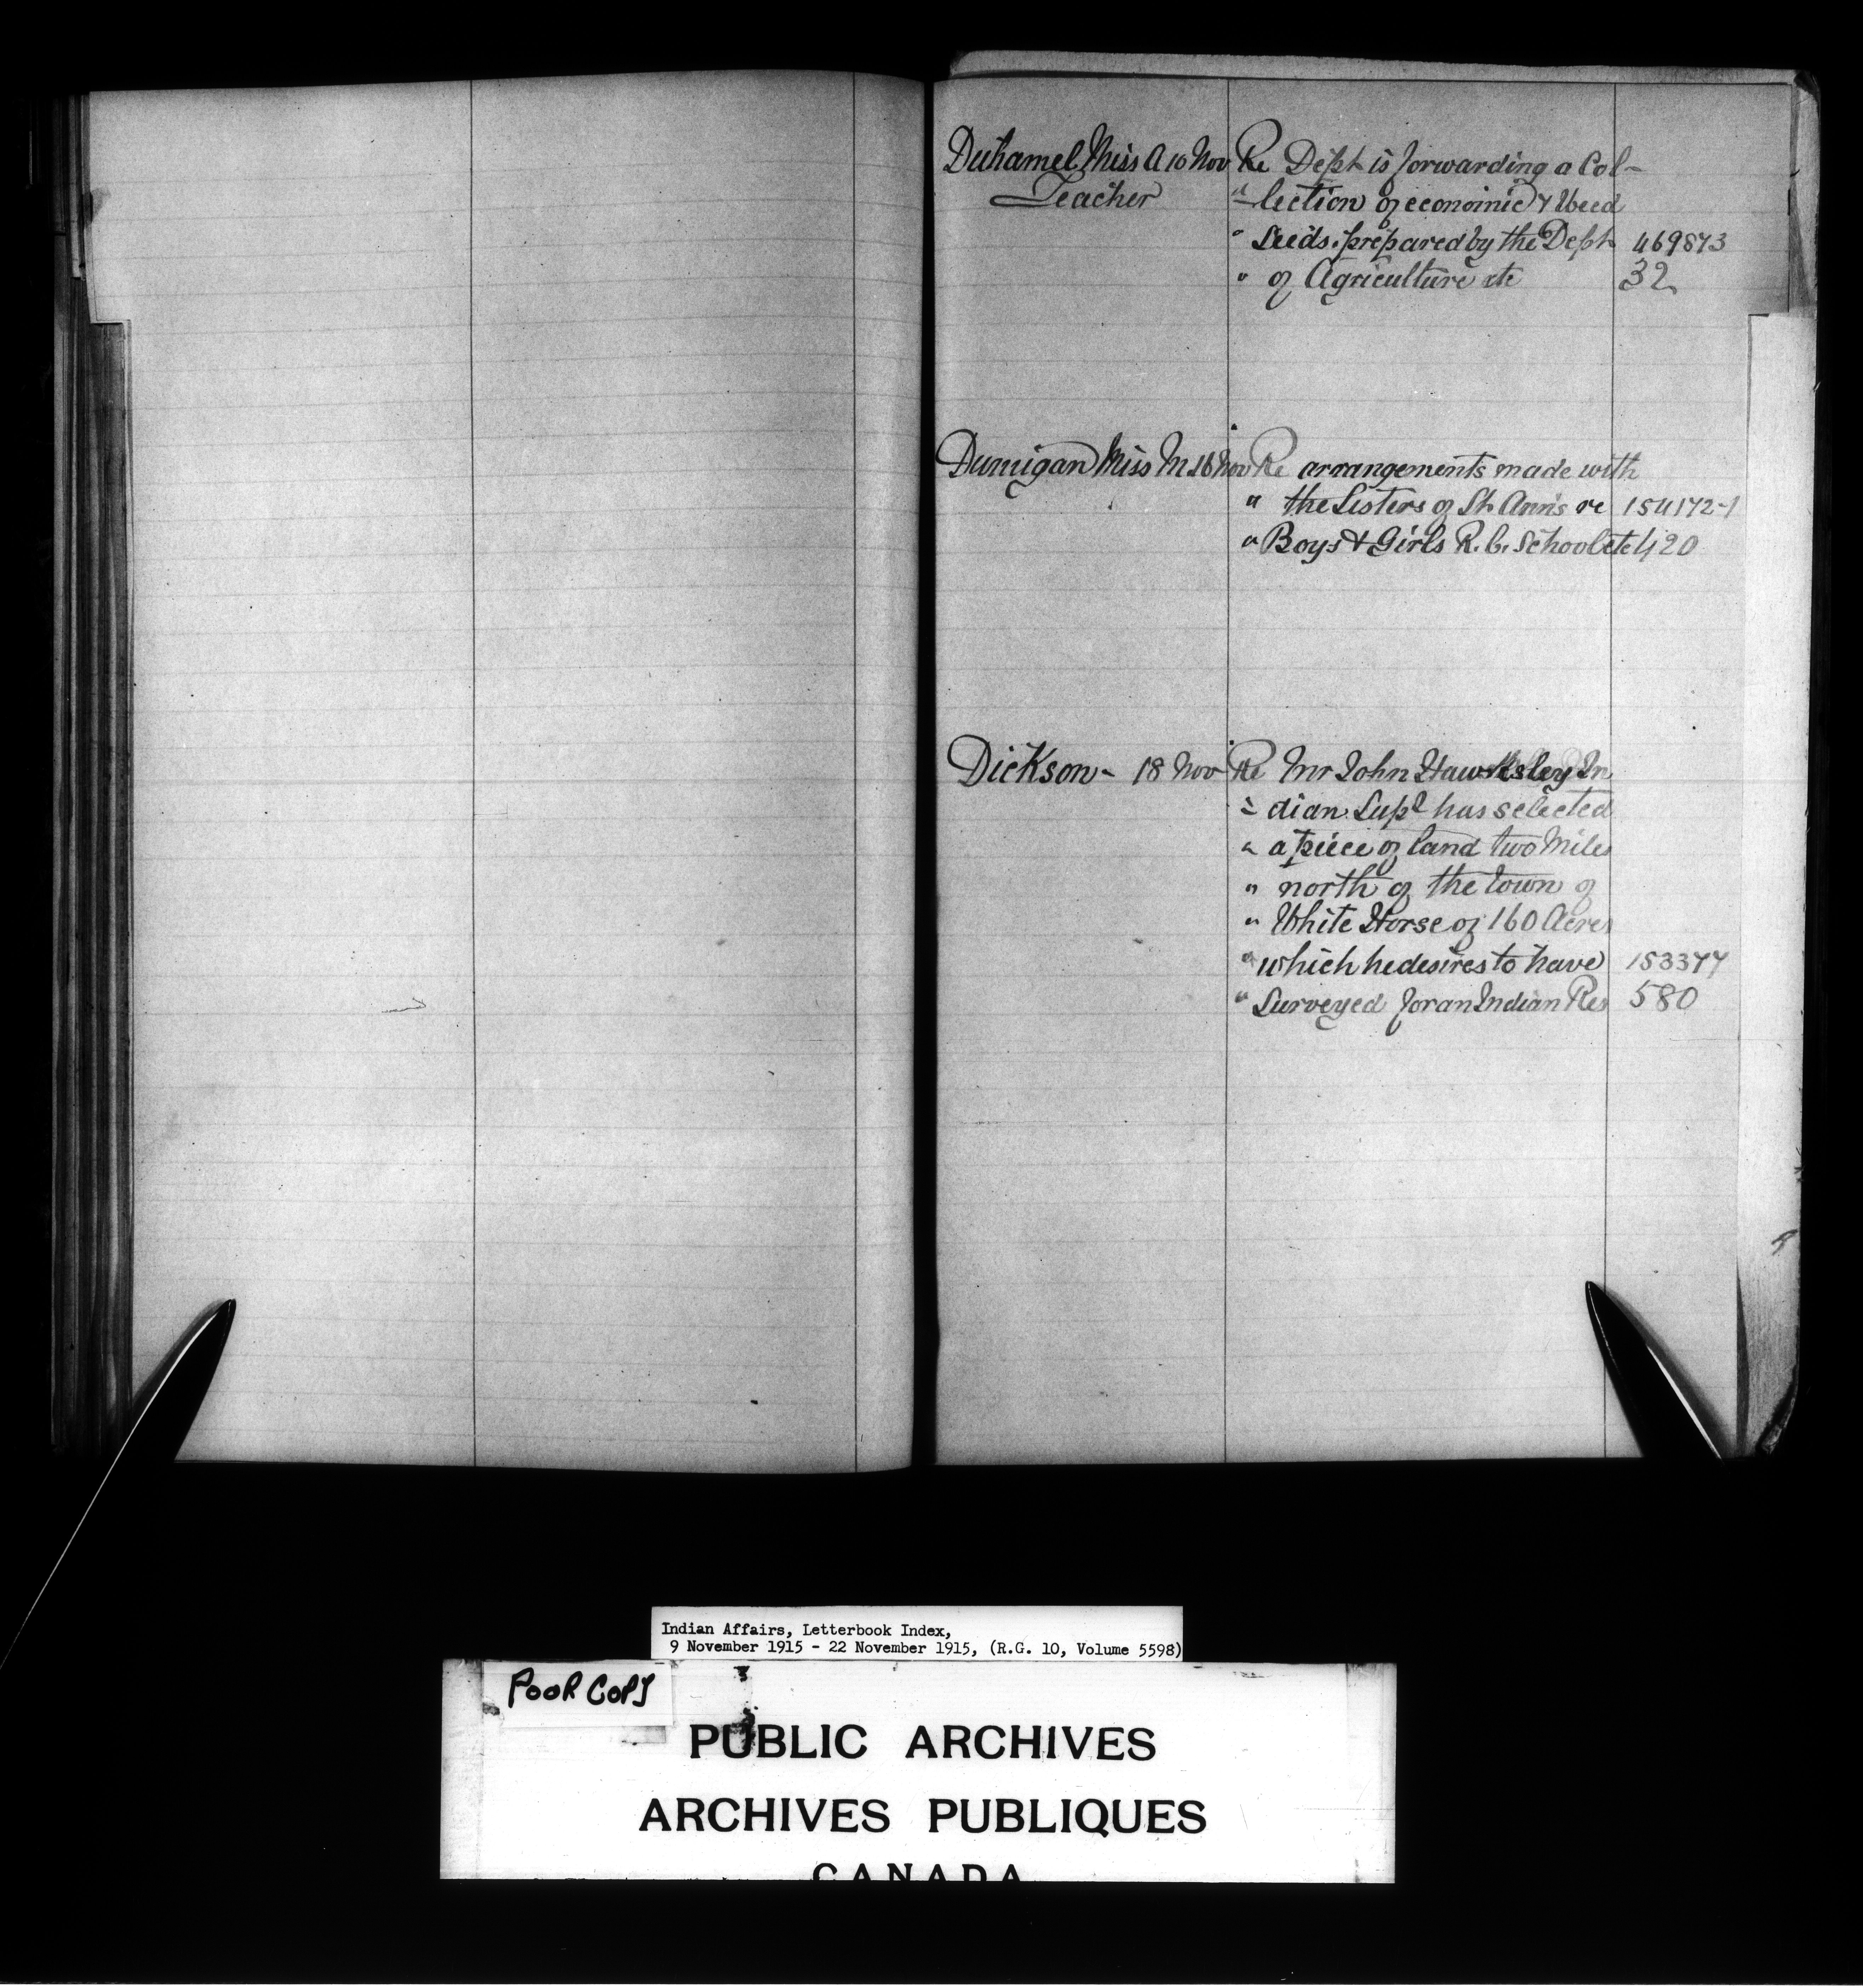 Duhamel Miss A 10 Nov Re Dept is forwarding a Col-
Teacher " lection of economic & Weed
" Seeds prepared by the Dept 469873
" of Agriculture etc 32
Dumigan Miss M 16 Nov Re arrangements made with
" the Sisters of St Ann's re 154172-1
" Boys & Girls R.C. School etc 420
Dickson - 18 Nov Re Mr John Hawksley In
" dian Supt has selected
" a piece of land two Miles
" north of the town of
" White Horse of 160 Acres
" which he desires to have 153377
" Surveyed for an Indian Res 580
Indian Affairs, Letterbook Index,
9 November 1915 - 22 November 1915, (R.G. 10, Volume 5598)
POOR COPY
PUBLIC ARCHIVES
ARCHIVES PUBLIQUES
CANADA